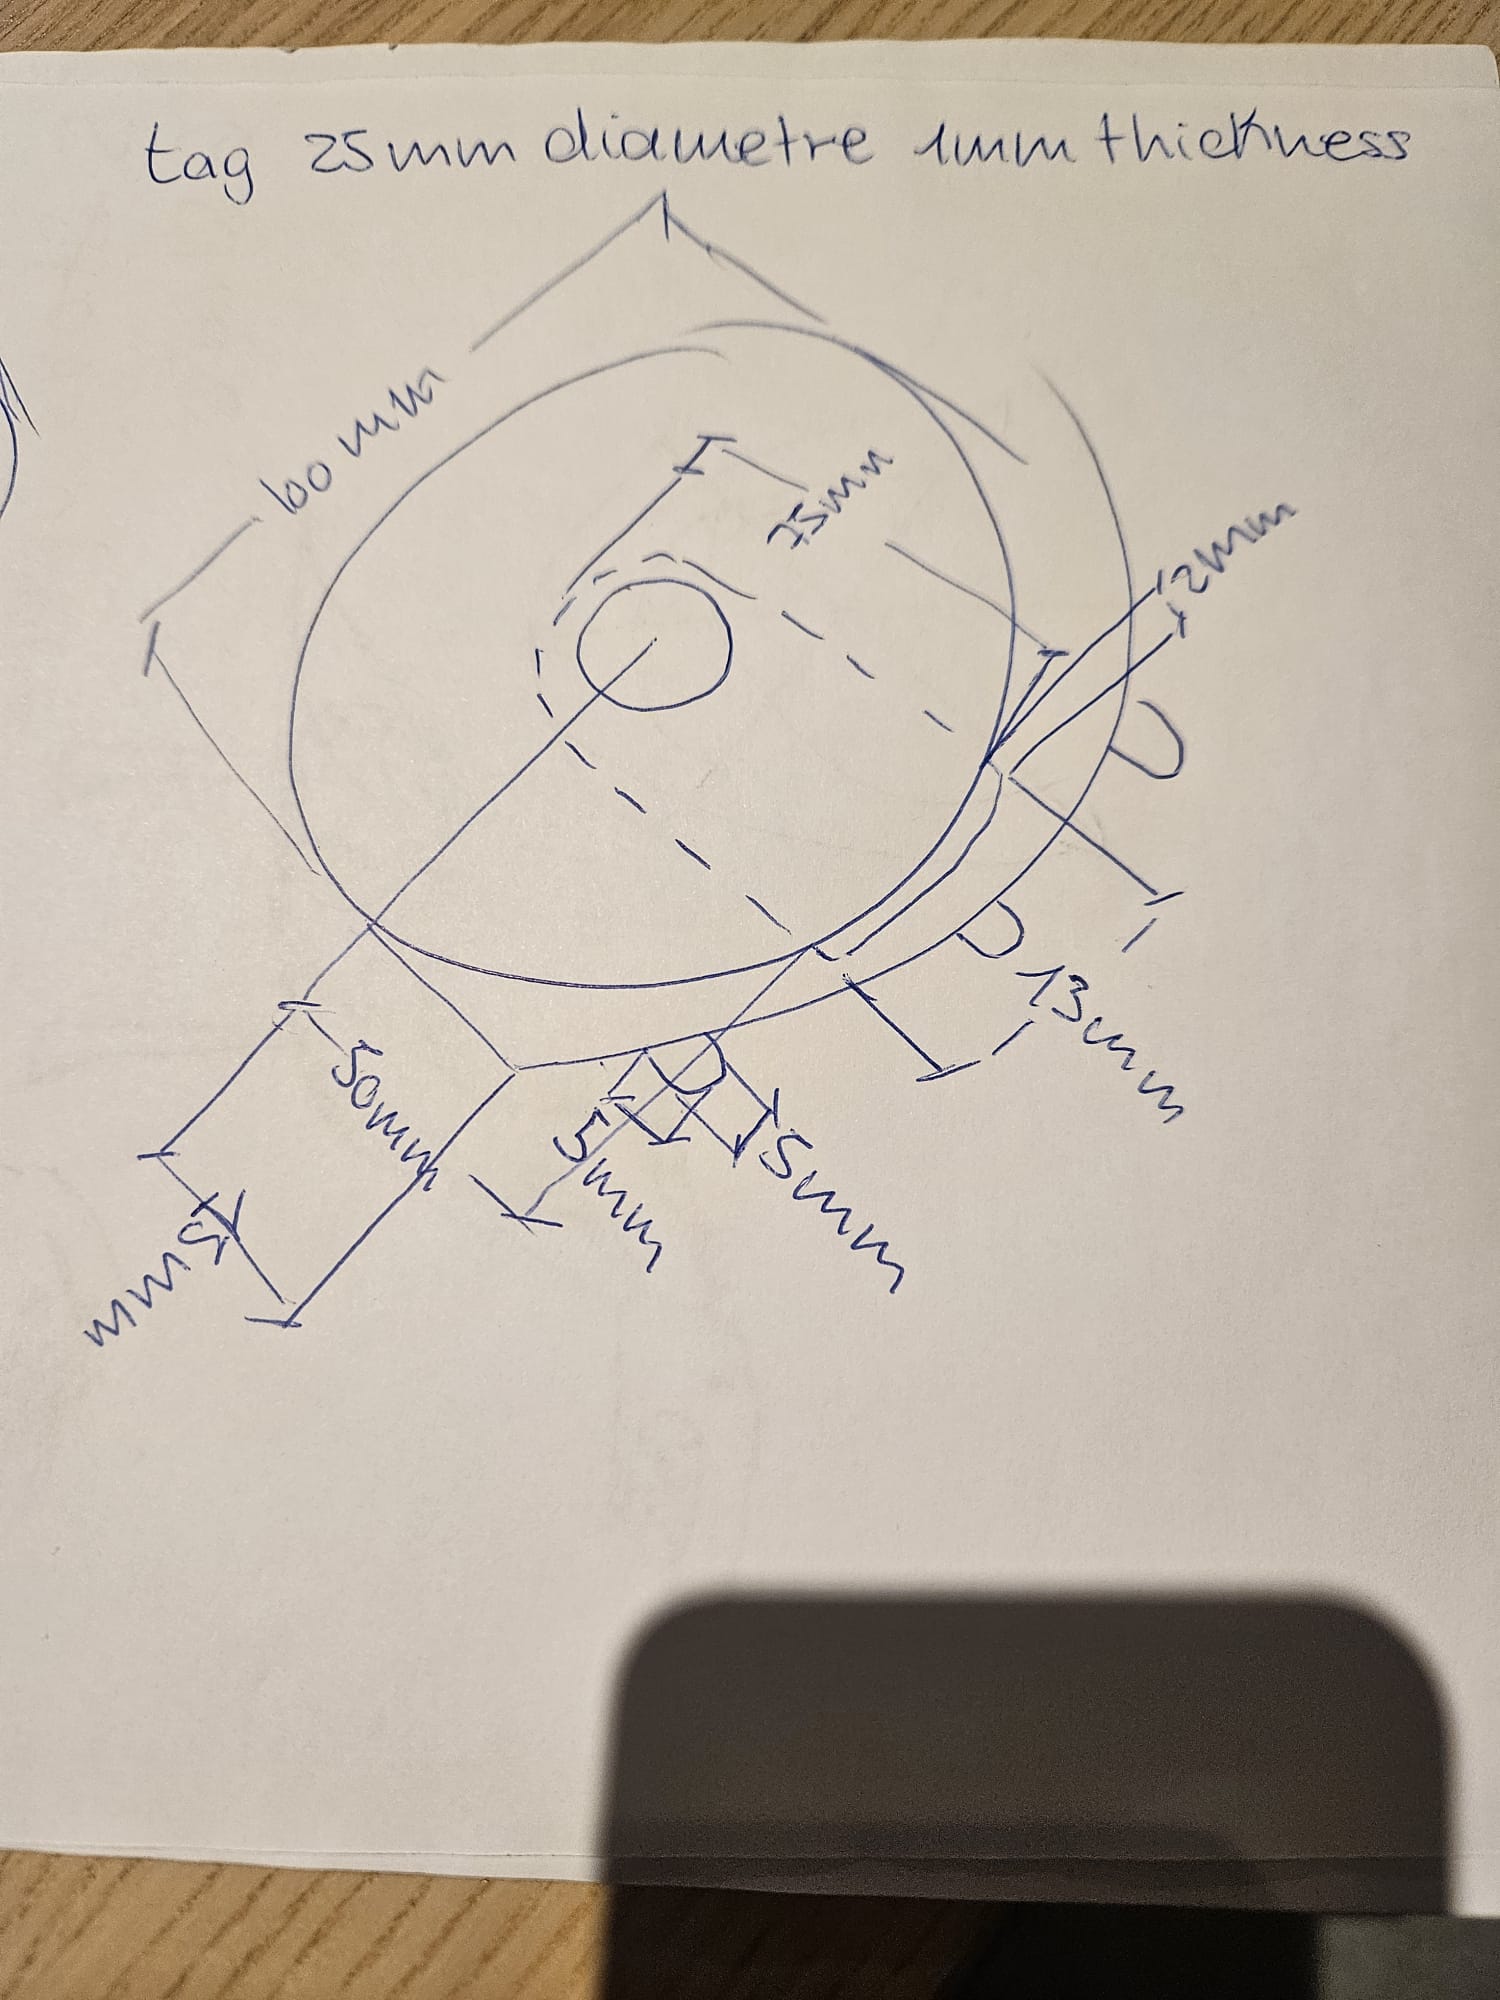 tag 25mm diametre 1mm thickness
60mm
75mm
2mm
13mm
50mm
5mm
5mm
5mm